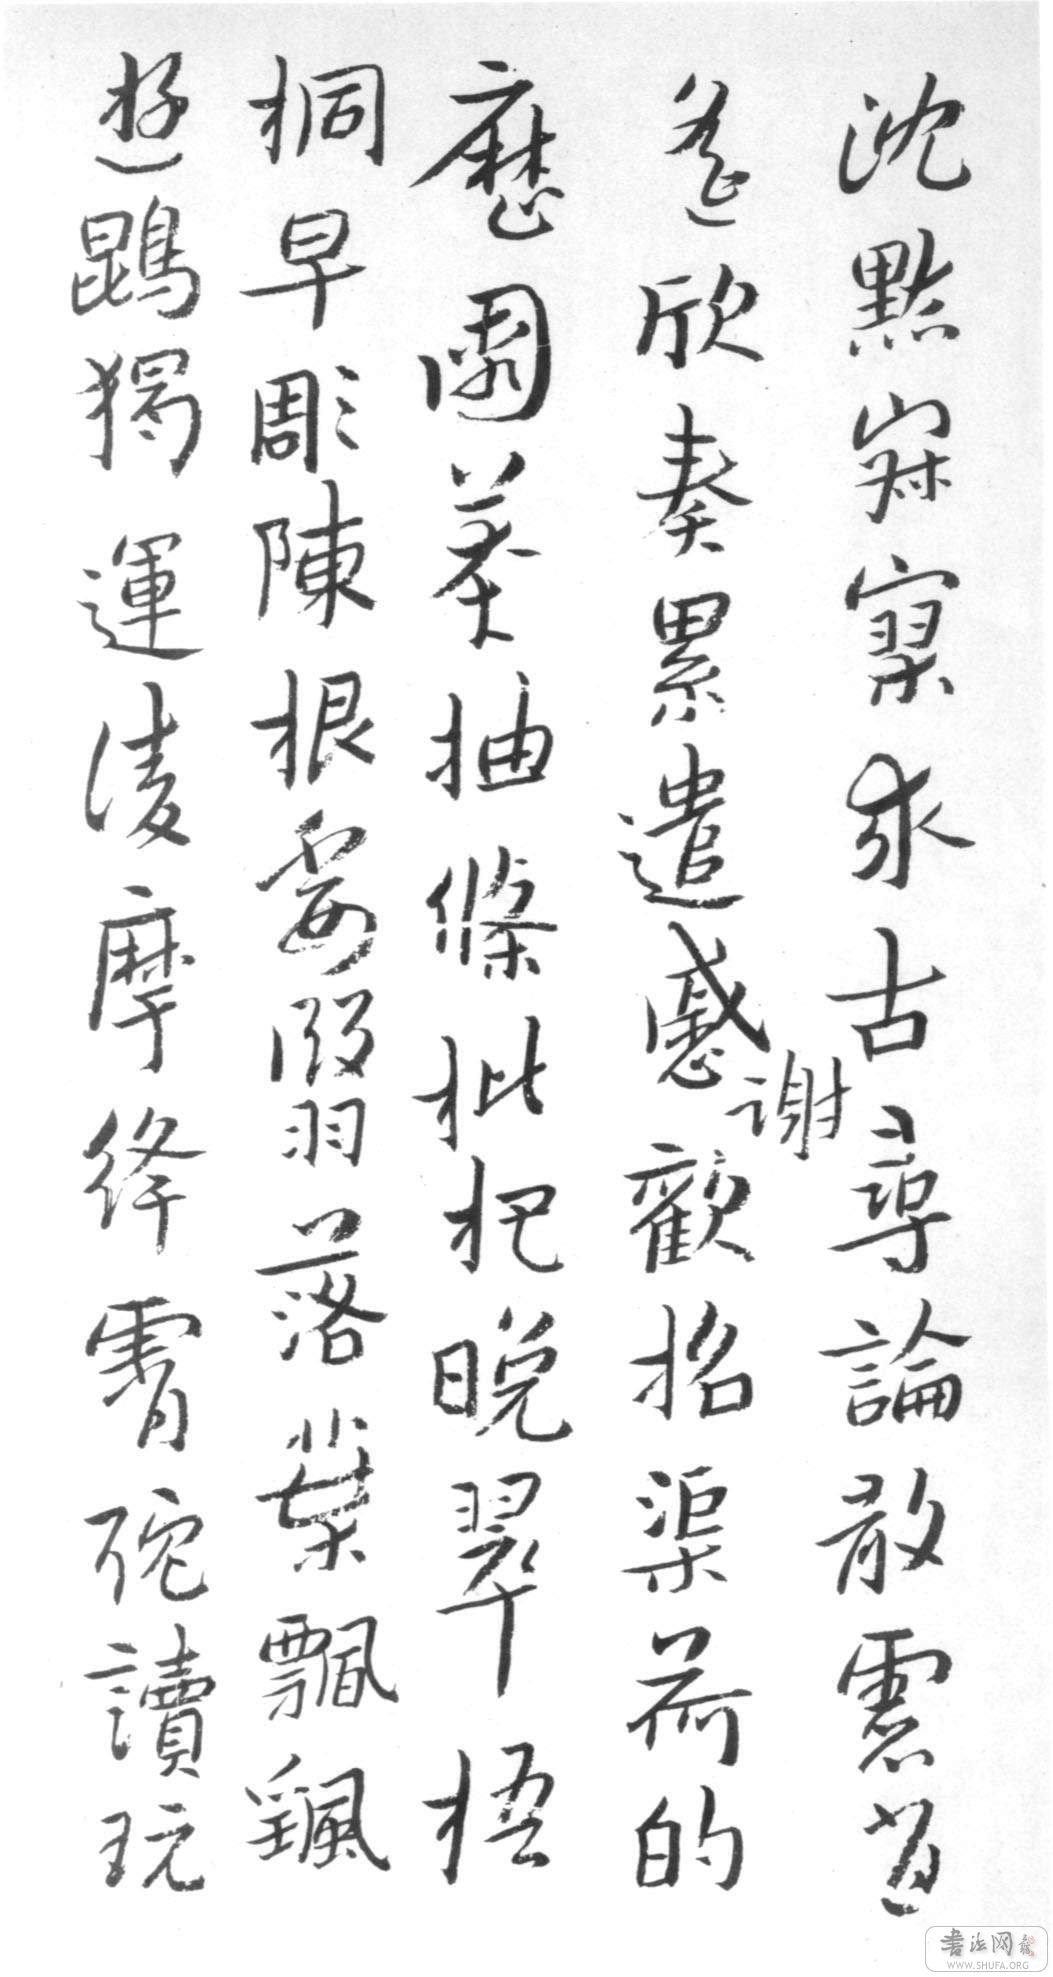 沈默寂寥求古尋論散慮逍
遙欣奏累遣慼歡招渠荷的
謝
歷園莽抽條枇杷晚翠梧
桐早彫陳根委翳落葉飄颻
遊鵾獨運淩摩絳霄耽讀玩
書法网
WWW.SHUFA.ORG